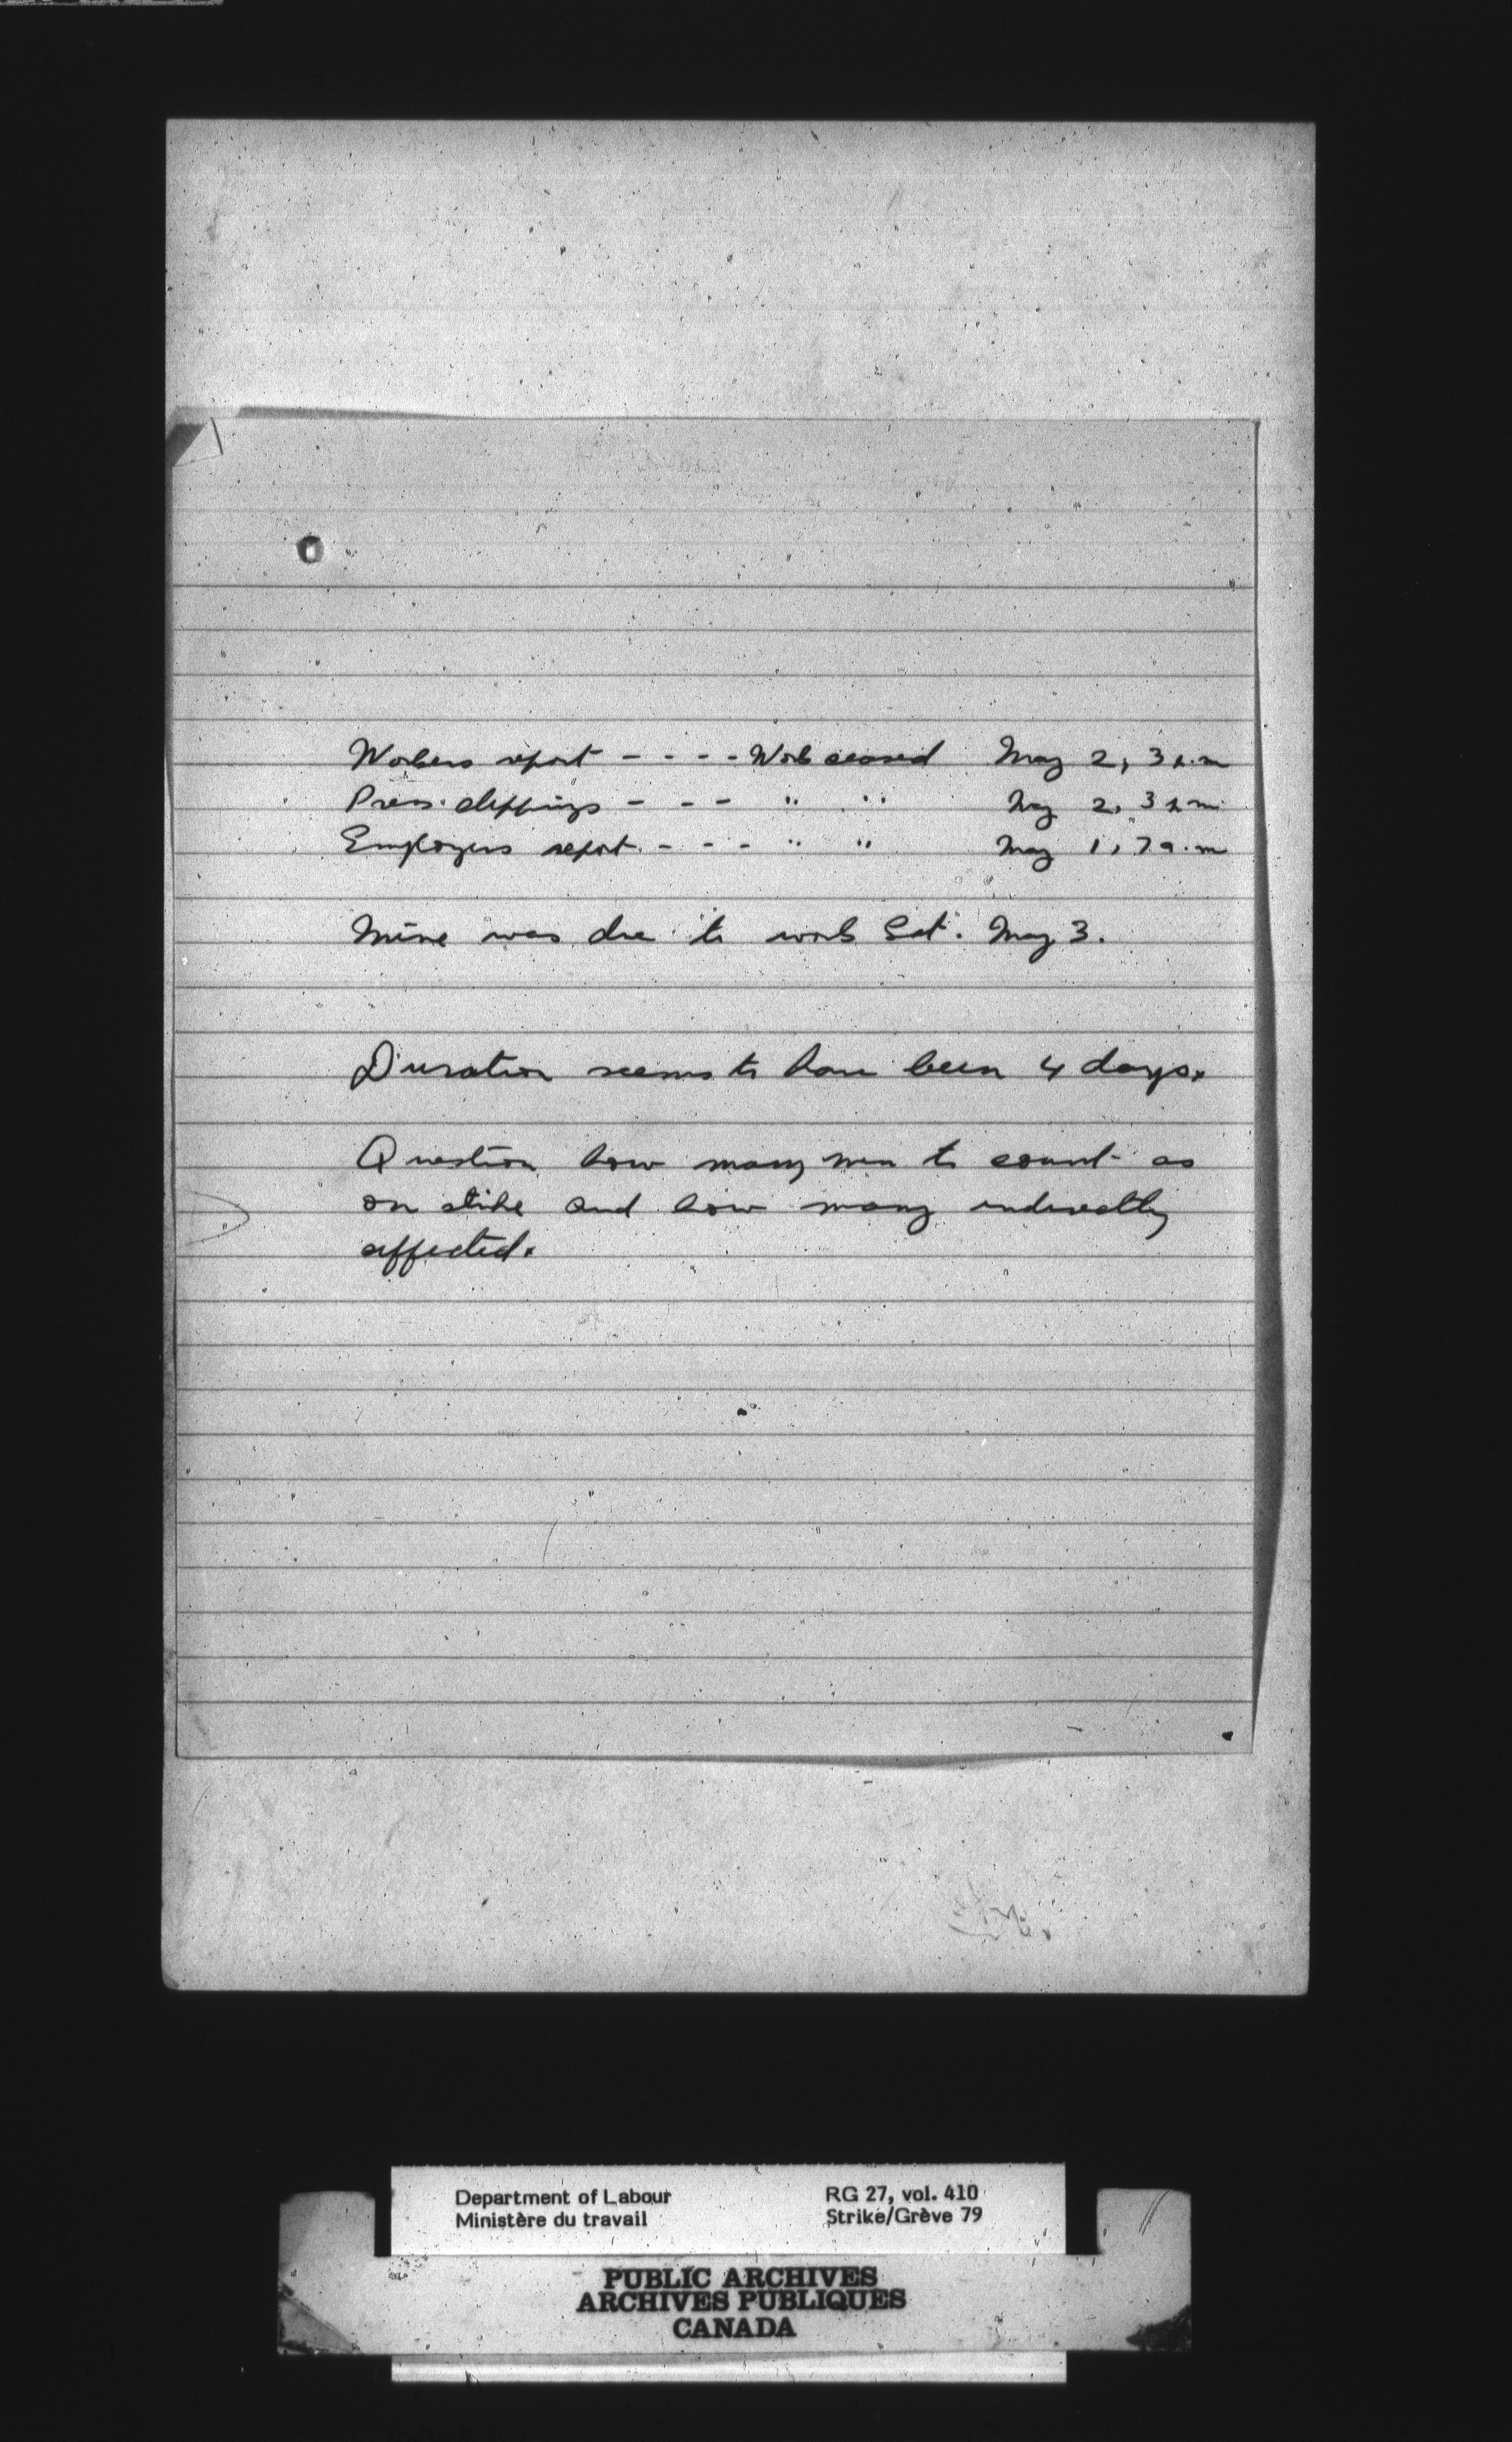 Workers report - - - - Work ceased May 2, 3 p.m
Press clippings - - - " " May 2, 3 p m
Employers report. - - - " " May 1, 7 a.m
Mine was due to work Sat. May 3.
Duration seems to have been 4 days.
Question how many men to count as
on strike and how many indirectly
affected.
Department of Labour RG 27, vol. 410
Ministère du travail Strike/Grève 79
PUBLIC ARCHIVES
ARCHIVES PUBLIQUES
CANADA